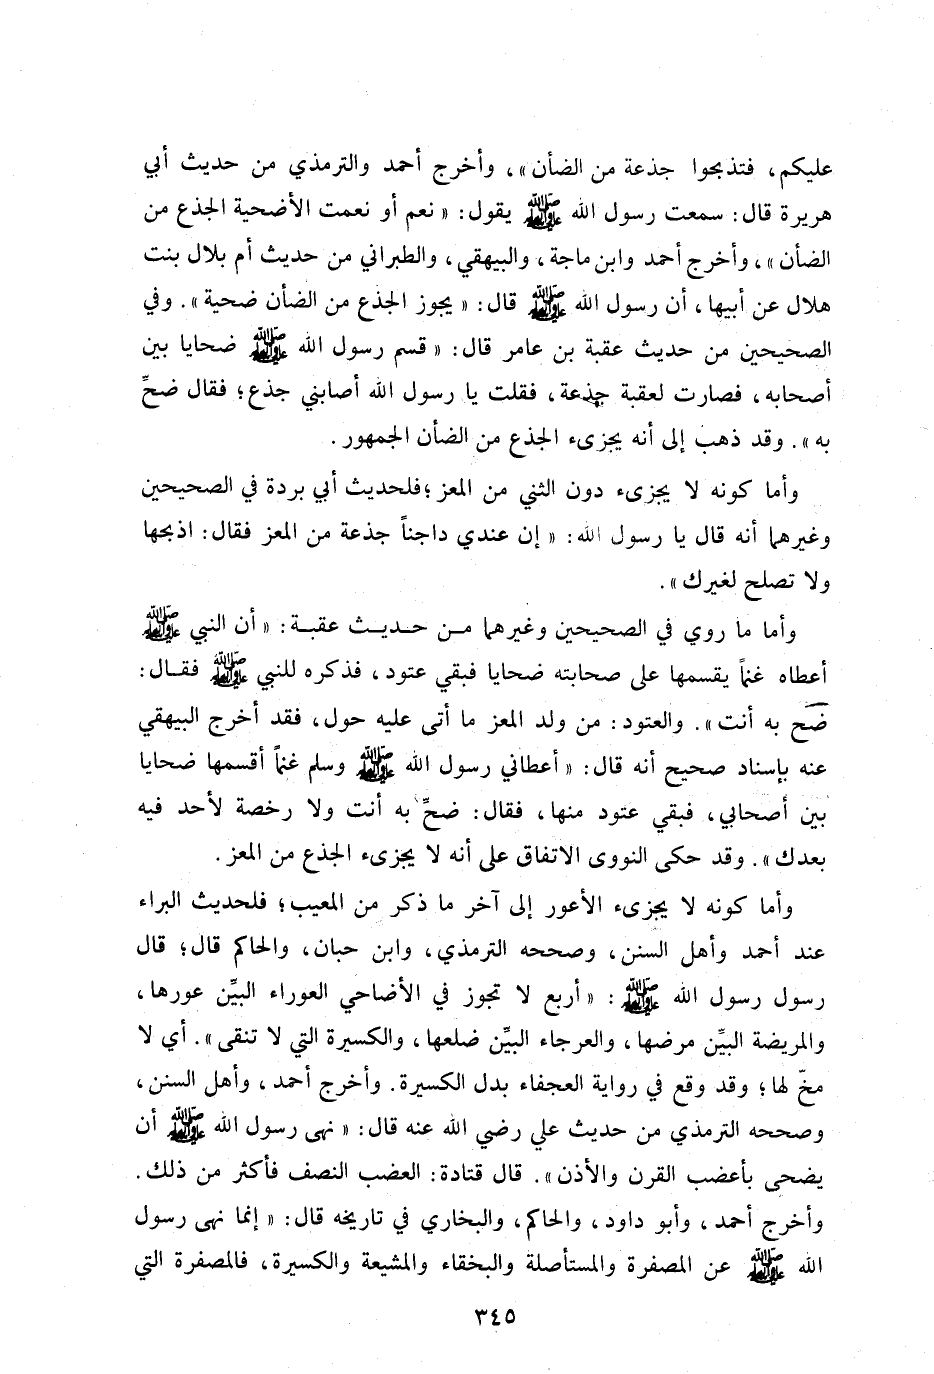 عليكم، فتذبحوا جذعة من الضأن»، وأخرج أحمد والترمذي من حديث أبي
هريرة قال: سمعت رسول الله ﷺ يقول: «نعم أو نعمت الأضحية الجذع من
الضأن»، وأخرج أحمد وابن ماجة، والبيهقي، والطبراني من حديث أم بلال بنت
هلال عن أبيها، أن رسول الله ﷺ قال: «يجوز الجذع من الضأن ضحية». وفي
الصحيحين من حديث عقبة بن عامر قال: «قسم رسول الله ﷺ ضحايا بين
أصحابه، فصارت لعقبة جذعة، فقلت يا رسول الله أصابني جذع؛ فقال ضحِّ
به». وقد ذهب إلى أنه يجزىء الجذع من الضأن الجمهور.
وأما كونه لا يجزىء دون الثني من المعز؛ فلحديث أبي بردة في الصحيحين
وغيرهما أنه قال يا رسول الله: «إن عندي داجناً جذعة من المعز فقال: اذبحها
ولا تصلح لغيرك».
وأما ما روي في الصحيحين وغيرهما من حديث عقبة: «أن النبي ﷺ
أعطاه غنماً يقسمها على صحابته ضحايا فبقي عتود، فذكره للنبي ﷺ فقال:
ضَح به أنت». والعتود: من ولد المعز ما أتى عليه حول، فقد أخرج البيهقي
عنه بإسناد صحيح أنه قال: «أعطاني رسول الله ﷺ وسلم غنماً أقسمها ضحايا
بين أصحابي، فبقي عتود منها، فقال: ضحِّ به أنت ولا رخصة لأحد فيه
بعدك». وقد حكى النووى الاتفاق على أنه لا يجزىء الجذع من المعز.
وأما كونه لا يجزىء الأعور إلى آخر ما ذكر من المعيب؛ فلحديث البراء
عند أحمد وأهل السنن، وصححه الترمذي، وابن حبان، والحاكم قال؛ قال
رسول رسول الله ﷺ: «أربع لا تجوز في الأضاحي العوراء البيِّن عورها،
والمريضة البيِّن مرضها، والعرجاء البيِّن ضلعها، والكسيرة التي لا تنقى». أي لا
مخّ لها؛ وقد وقع في رواية العجفاء بدل الكسيرة. وأخرج أحمد، وأهل السنن،
وصححه الترمذي من حديث علي رضي الله عنه قال: «نهى رسول الله ﷺ أن
يضحى بأعضب القرن والأذن». قال قتادة: العضب النصف فأكثر من ذلك.
وأخرج أحمد، وأبو داود، والحاكم، والبخاري في تاريخه قال: «إنما نهى رسول
الله ﷺ عن المصفرة والمستأصلة والبخقاء والمشيعة والكسيرة، فالمصفرة التي
٣٤٥